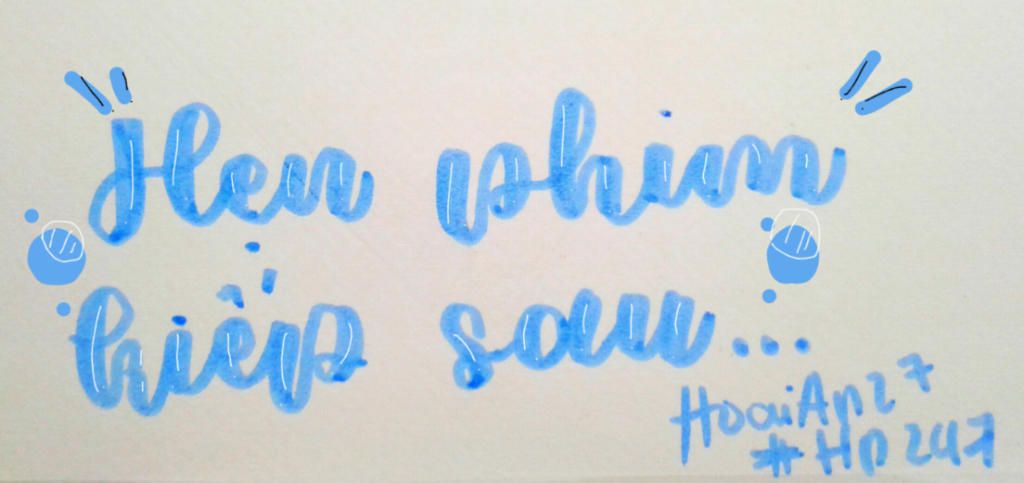 Hẹn phim
kiếp sau...
HoaiAn27
#Hp247